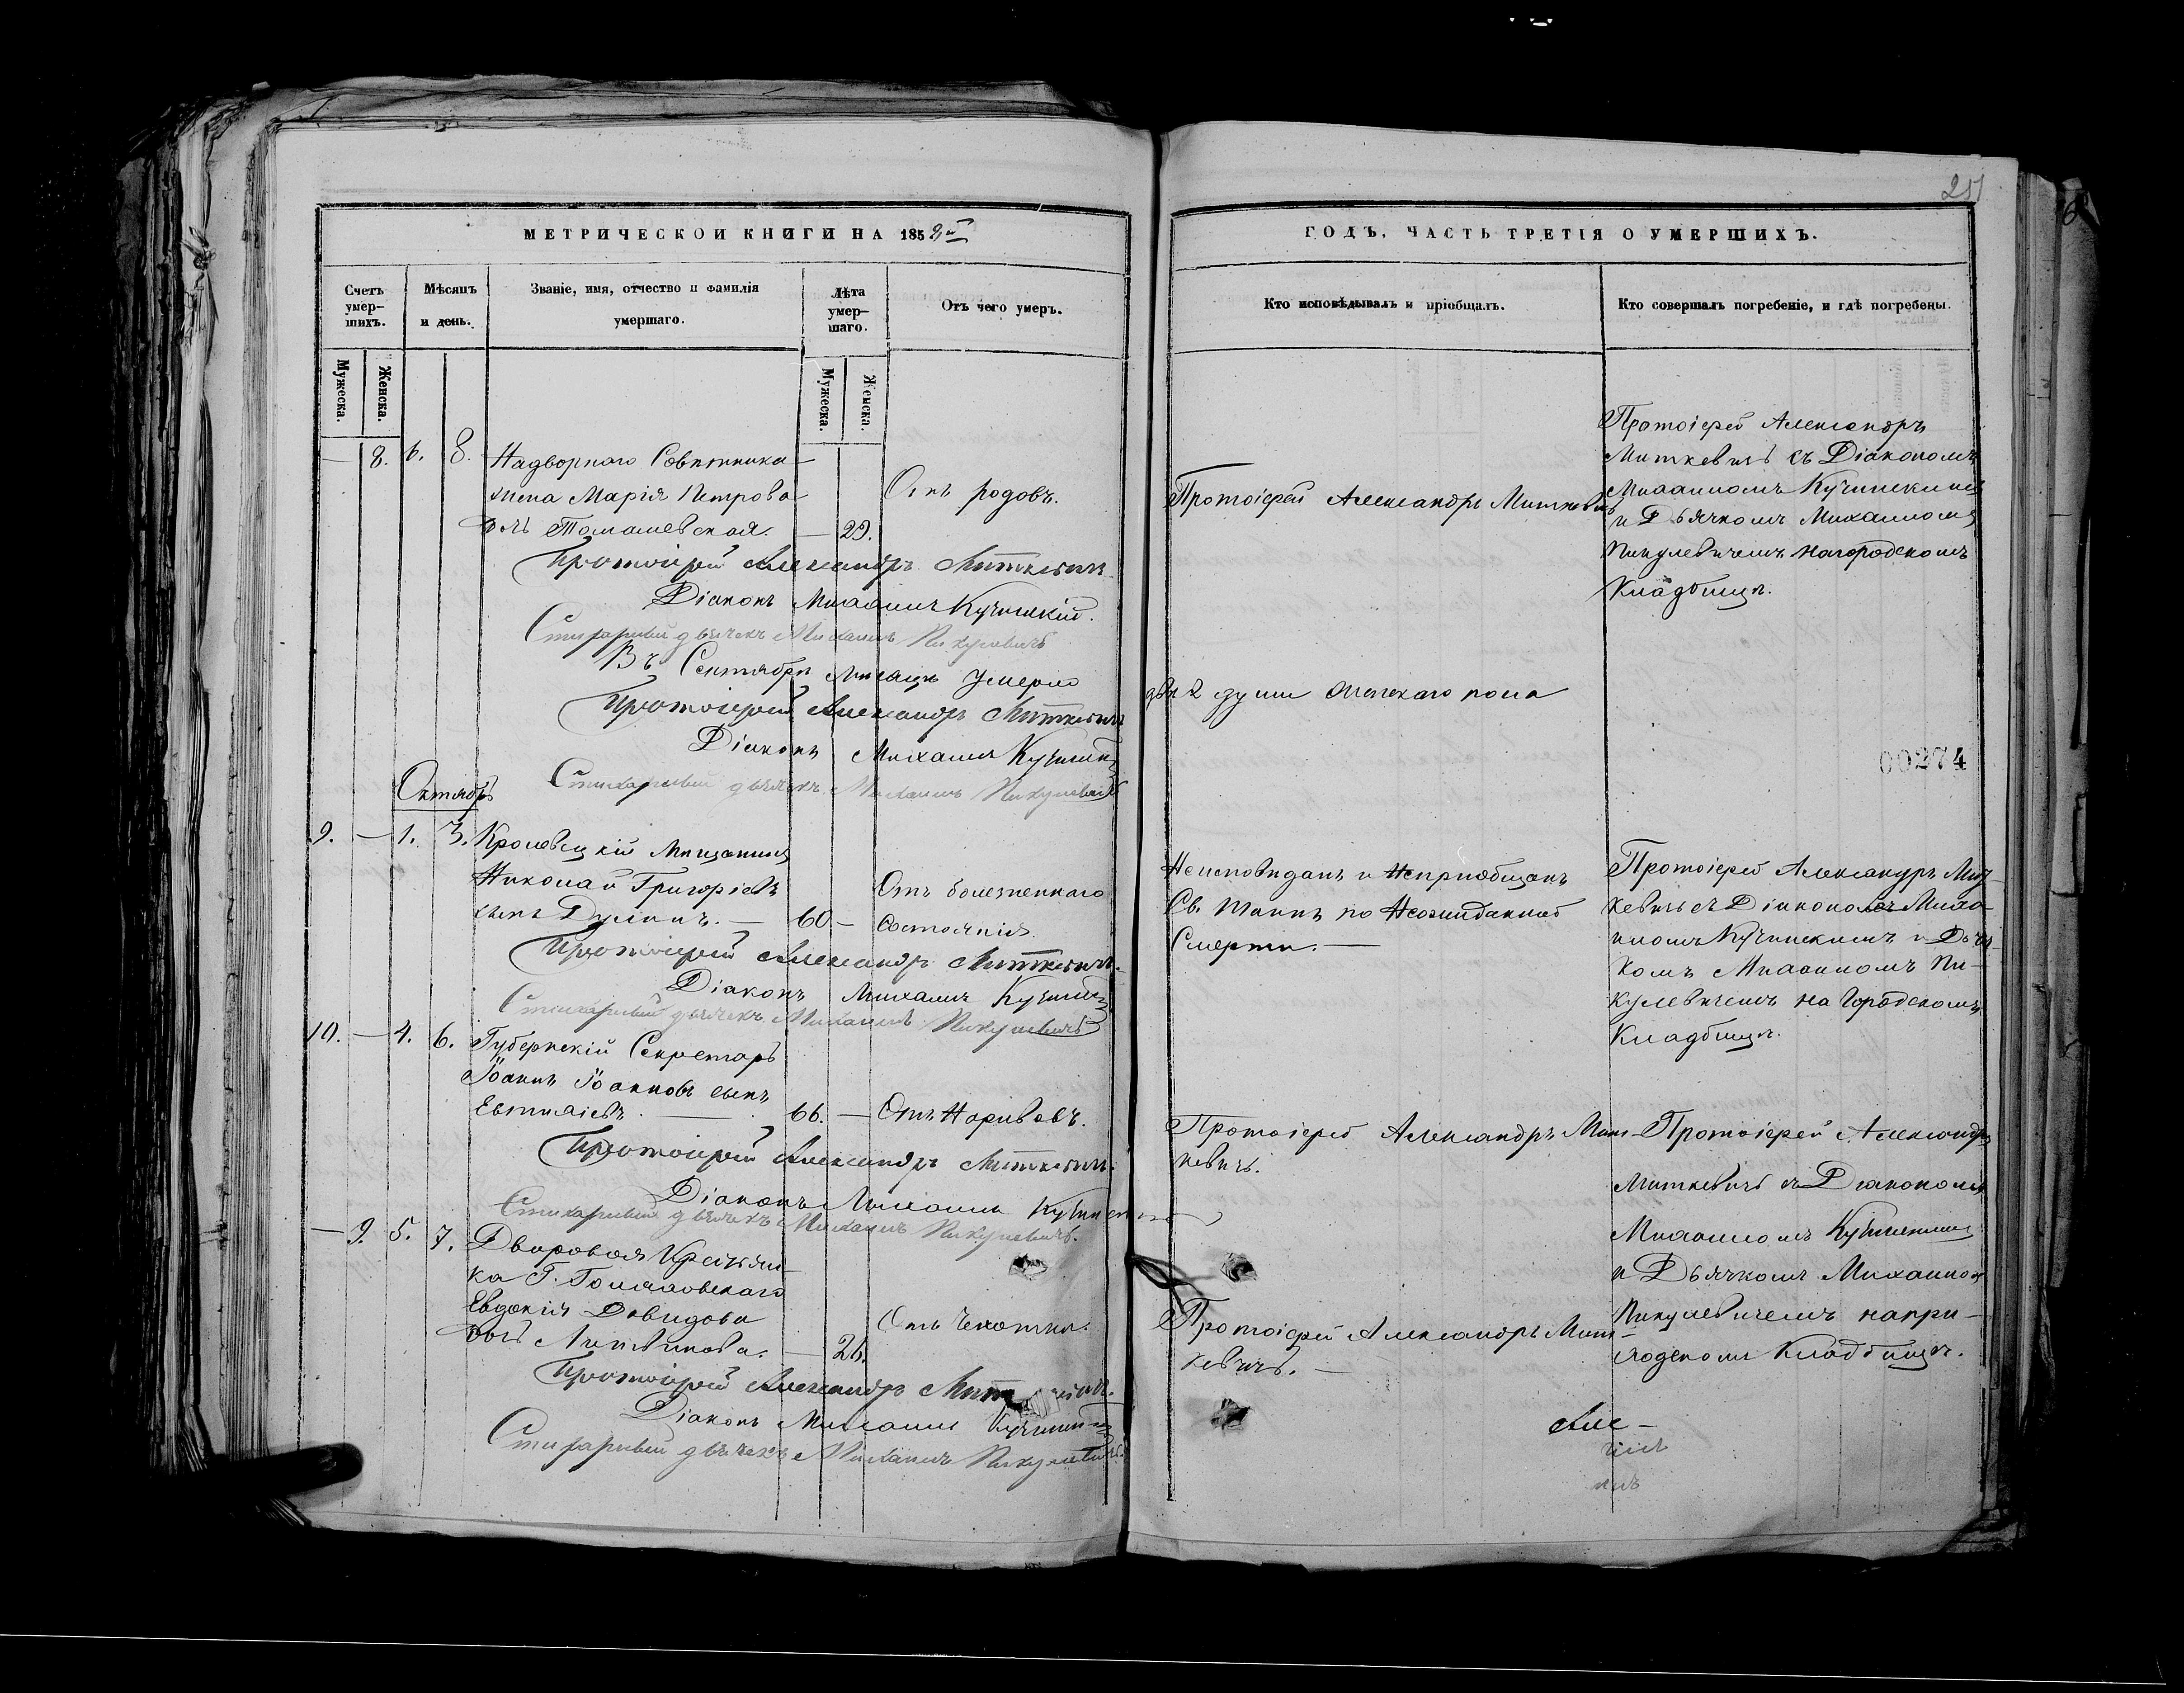 251
МЕТРИЧЕСКОЙ КНИГИ НА 1852й
ГОДЪ, ЧАСТЬ ТРЕТІЯ О УМЕРШИХЪ.
Счетъ умер-шихъ.
Мѣсяцъ и день.
Званіе, имя, отчество и фамилія умершаго.
Лѣта умер-шаго.
Отъ чего умеръ.
Кто исповѣдывалъ и пріобщалъ.
Кто совершалъ погребеніе, и гдѣ погребены.
Мужеска.
Женска.
Мужеска.
Женска.
— 8. 6. 8. Надворнаго Совѣтника
жена Марія Петрова
дчь Томашевская. — 29.
Отъ родовъ.
Протоіерей Александръ Миткевичъ
Протоіерей Александръ
Миткевичъ съ Діакономъ
Михаиломъ Кучинскимъ
и Дьячкомъ Михаиломъ
Пикулевичемъ на городскомъ
Кладбищѣ.
Протоіерей Александръ Миткевичъ
Діаконъ Михаилъ Кучинскій.
Стихарный дьячекъ Михаилъ Пикулевичъ
Въ Сентябрѣ Мѣсяцѣ Умерло
двѣ 2 души Женскаго пола
Протоіерей Александръ Миткевичъ
Діаконъ Михаилъ Кучинскій
Стихарный дьячекъ Михаилъ Пикулевичъ
00274
Октябрь
9. — 1. 3. Кролевецкій Мѣщанинъ
Николай Григоріевъ
сынъ — 60 —
Отъ болезненнаго
Состоянія
Неисповѣданъ и Непріобщенъ
Св. Таинъ по Неожиданной
Смерти. —
Протоіерей Александръ Мит-
кевичъ съ Діакономъ Миха-
иломъ Кучинскимъ и Дьяч-
комъ Михаиломъ Пи-
кулевичемъ на Городскомъ
Кладбищѣ.
Протоіерей Александръ Миткевичъ.
Діаконъ Михаилъ Кучинскій
Стихарный дьячекъ Михаилъ Пикулевичъ
10. — 4. 6. Губернскій Секретарь
Іоаннъ Іоанновъ сынъ
66. — Отъ Нарывовъ.
Протоіерей Александръ Мит-
кевичъ.
Протоіерей Александръ
Миткевичъ съ Діакономъ
Михаиломъ Кучинскимъ
и Дьячкомъ Михаиломъ
Пикулевичемъ на при-
ходскомъ Кладбищѣ.
Протоіерей Александръ Миткевичъ.
Діаконъ Михаилъ Кучинскій
Стихарный дьячекъ Михаилъ Пикулевичъ.
— 9. 5. 7. Дворовая Крестьян-
ка Г.
Евдокія Давидова
дочь Литвинова. — 26.
Отъ Чахотки.
Протоіерей Александръ Мит-
кевичъ. —
Протоіерей Александръ Миткевичъ.
Діаконъ Михаилъ Кучинскій
Стихарный дьячекъ Михаилъ Пикулевичъ.
Але-